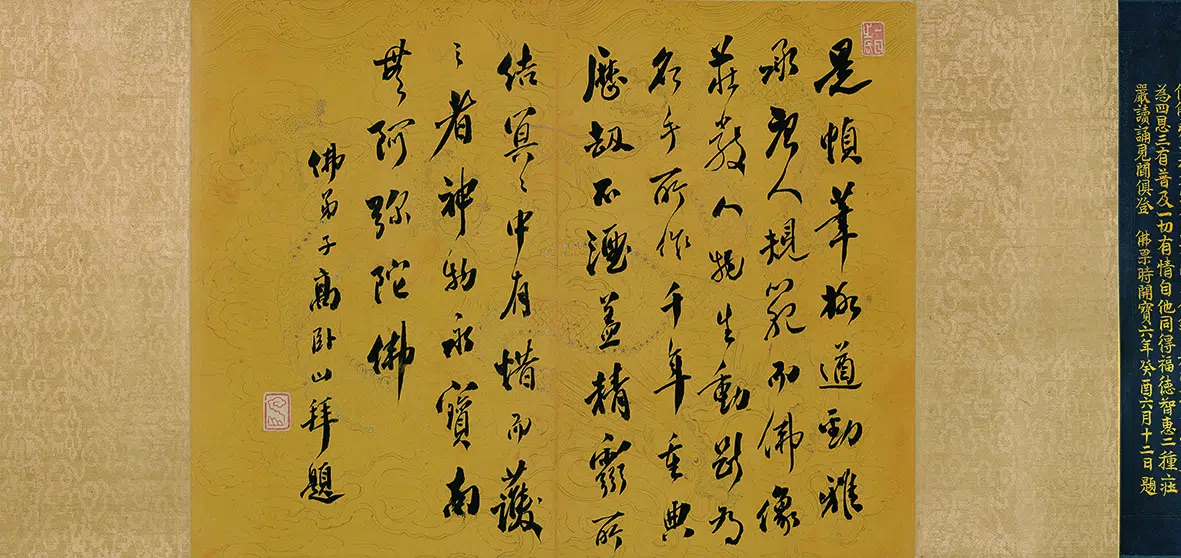 為四恩三有普及一切有情自他同得福德智惠二種莊
嚴讀誦見聞俱登 佛果時開寶六年癸酉六月十二日題
是幀筆極遒勁雅
承唐人規範而佛像
莊嚴人物生動斷為
名手所作千年重典
歷劫不湮蓋精靈所
結冥〻中有惜而護
之者神物永寶南
無阿彌陀佛
佛弟子高卧山拜題